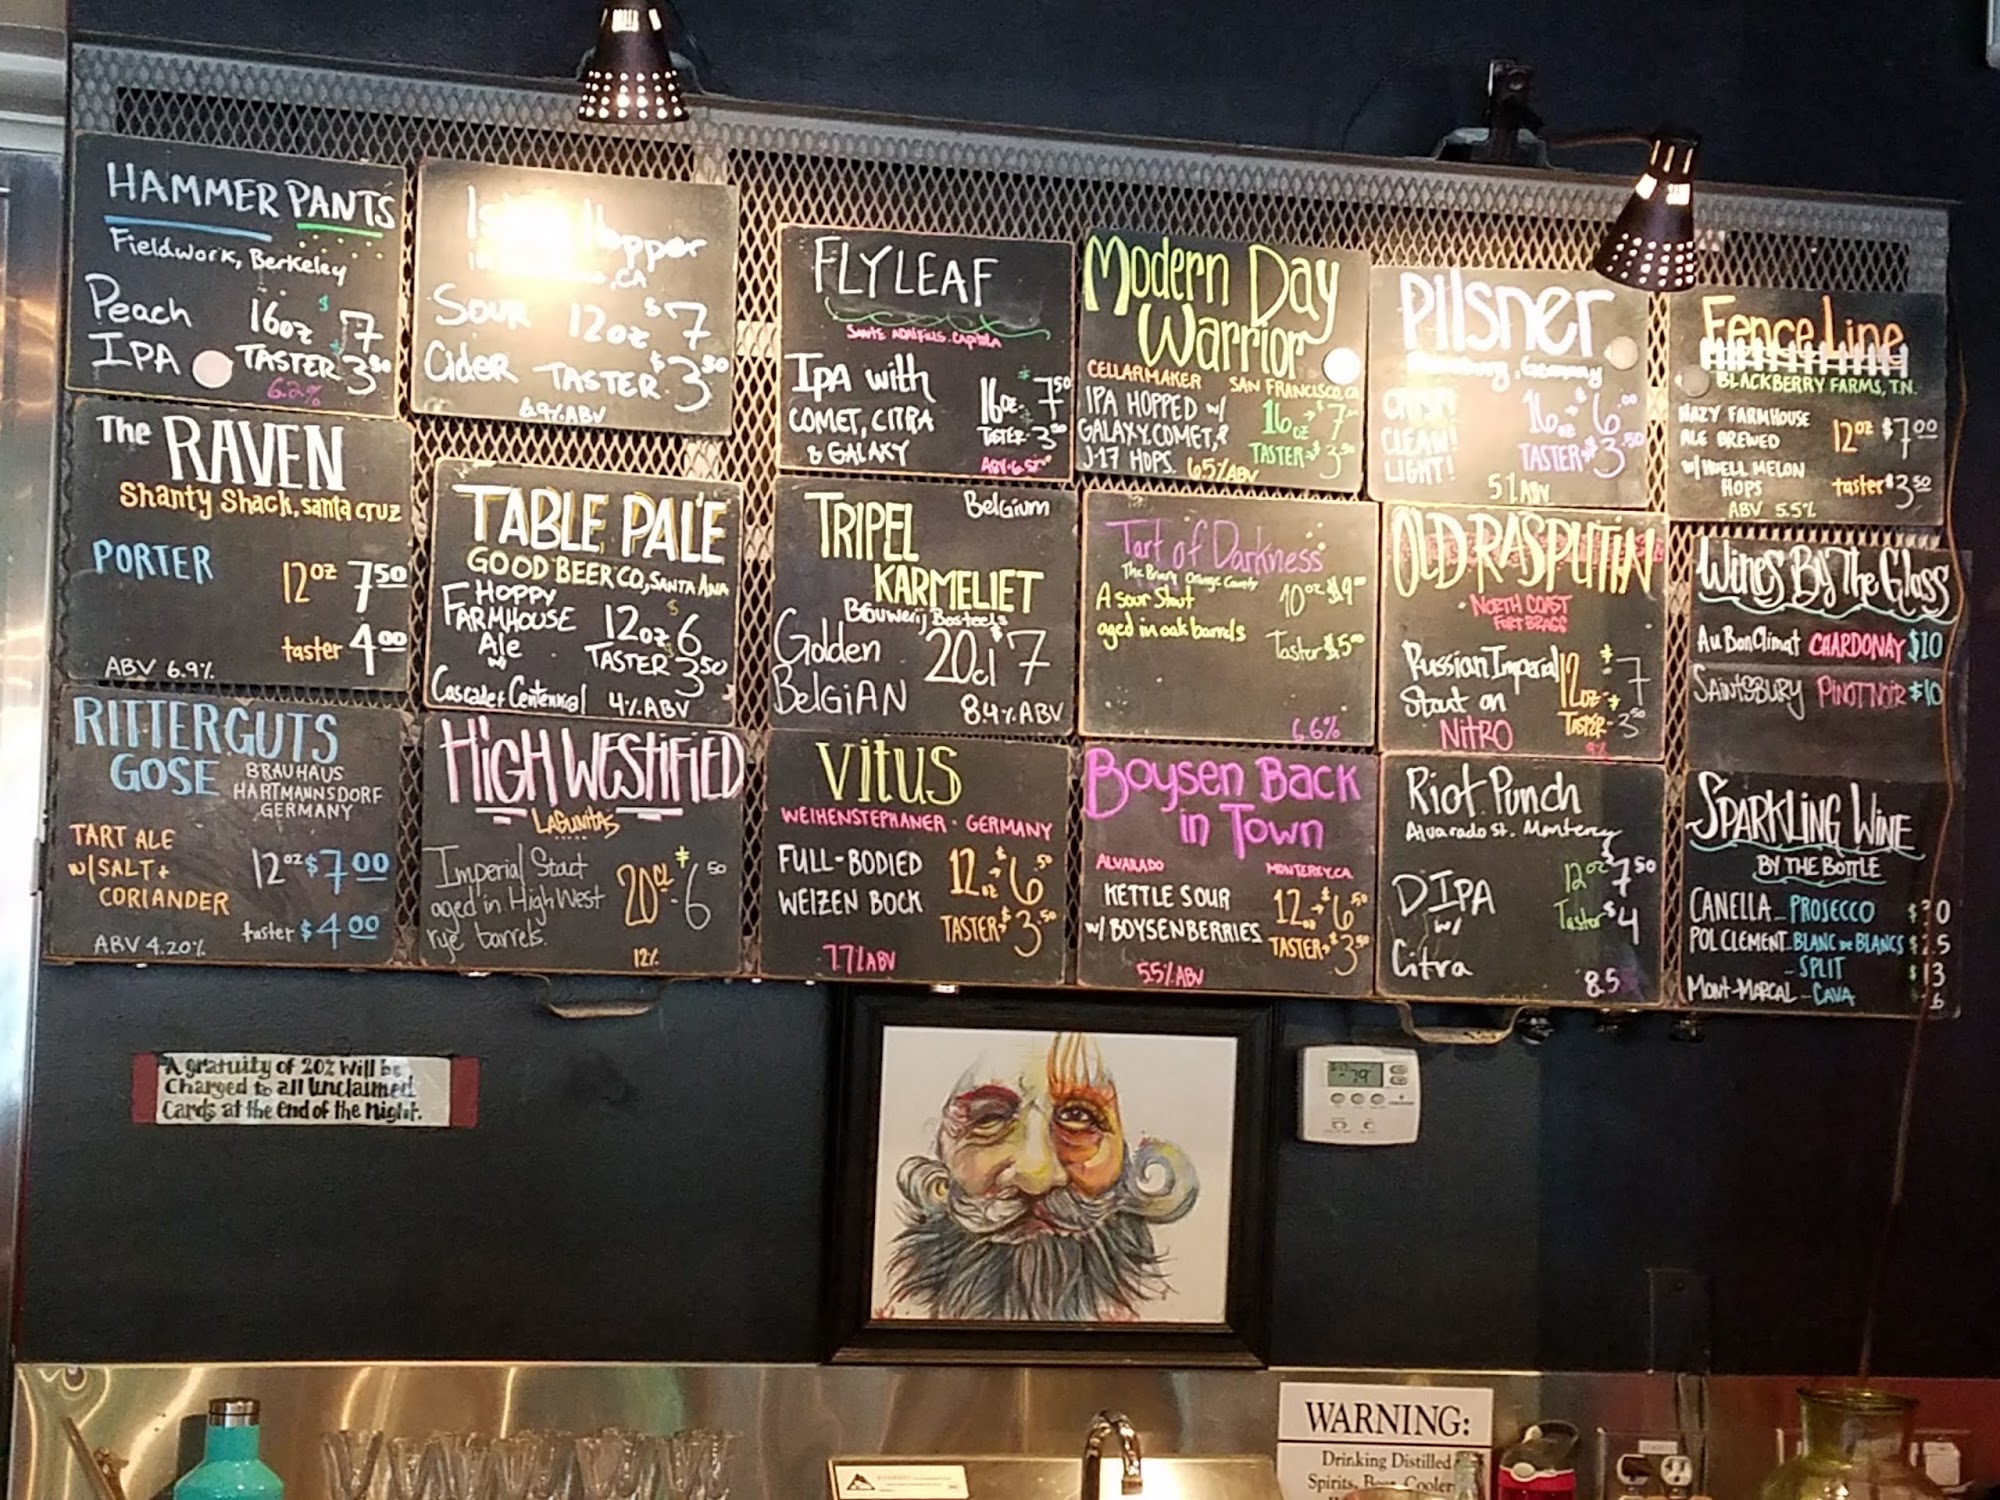 HAMMER PANTS
Fieldwork, Berkeley
Peach 16oz $7
IPA TASTER $3.50
6.2%
Hopper
, CA
SOUR 12oz $7
Cider TASTER $3.50
6.9% ABV
FLYLEAF
SANTE ADAIRIUS. CAPITOLA
IPA with
COMET, CITRA
& GALAXY
16oz- $7.50
TASTER- 3.50
Modern Day
Warrior
CELLARMAKER SAN FRANCISCO, CA
IPA HOPPED w/
GALAXY, COMET, &
J-17 HOPS. 6.5% ABV
16oz $7
TASTER $3.50
PILSNER
, Germany
CRISP!
CLEAN!
LIGHT!
16oz $6.00
TASTER $3.50
5% ABV
Fence Line
BLACKBERRY FARMS, T.N.
HAZY FARMHOUSE
ALE BREWED
w/ HUELL MELON
HOPS
12oz $7.00
taster $3.50
ABV 5.5%
The RAVEN
Shanty Shack, santa cruz
PORTER 12oz 7.50
taster 4.00
ABV 6.9%
TABLE PALE
GOOD BEER CO, SANTA ANA
HOPPY
FARMHOUSE
Ale
w/
Cascade + Centennial
12oz $6
TASTER $3.50
4% ABV
Belgium
TRIPEL
KARMELIET
Brouwerij Bosteels
Golden 20cl $7
BELGIAN 8.4% ABV
Tart of Darkness
The Bruery Orange County
A sour Stout
aged in oak barrels
10oz $9.00
Taster $5.00
6.6%
OLD RASPUTIN
NORTH COAST
FORT BRAGG
Russian Imperial
Stout on
NITRO
12oz $7
TASTER- $3.50
9%
Wines By The Glass
Au Bon Climat CHARDONAY $10
SAINTSBURY PINOT NOIR $10
RITTERGUTS
GOSE
BRAUHAUS
HARTMANNSDORF
GERMANY
TART ALE
w/ SALT +
CORIANDER
12oz $7.00
taster $4.00
ABV 4.20%
HIGH WESTIFIED
LAGUNITAS
Imperial Stout
aged in High West
rye barrels.
20CL- $6.50
12%
VITUS
WEIHENSTEPHANER - GERMANY
FULL-BODIED
WEIZEN BOCK
12oz- $6.50
TASTER- $3.50
7.7% ABV
Boysen Back
in Town
ALVARADO MONTEREY, CA.
KETTLE SOUR
w/ BOYSENBERRIES
12oz- $6.50
TASTER- $3.50
5.5% ABV
Riot Punch
Alvarado St. Monterey
DIPA
w/
Citra
12oz $7.50
Taster $4
8.5
SPARKLING WINE
BY THE BOTTLE
CANELLA - PROSECCO
POL CLEMENT - BLANC DE BLANCS
- SPLIT $13
MONT-MARCAL - CAVA
A gratuity of 20% will be
Charged to all unclaimed
Cards at the end of the night.
79
WARNING:
Drinking Distilled
Spirits, Beer, Cooler